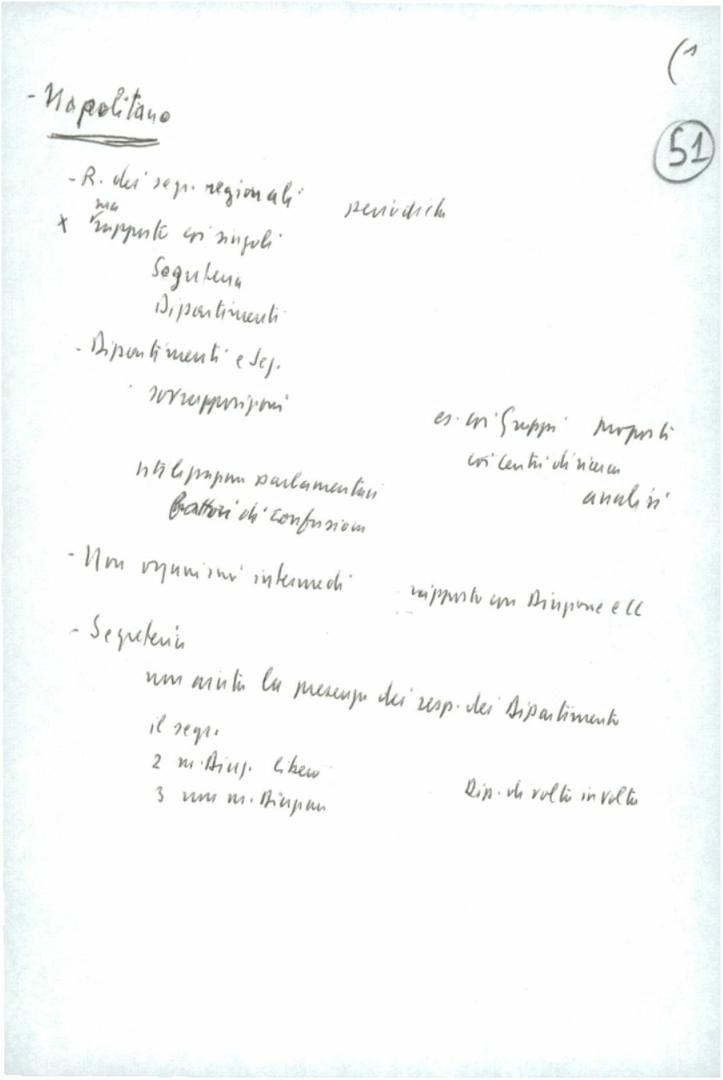 (1
51
- Napolitano
- R. dei segr. regionali periodiche
ma
x rapporto coi singoli
Segreteria
Dipartimenti
- Dipartimenti e Seg.
sovrapposizioni
es. coi Gruppi proposti
coi centri di ricerca
analisi
parlamentari
fattori di confusione
- Non organismi intermedi rapporto con Direzione e CC
- Segreteria
non aiuta la presenza dei resp. dei Dipartimento
il segr.
2 m. Direz. libero
3 non m. Direzione Dip. di volta in volta